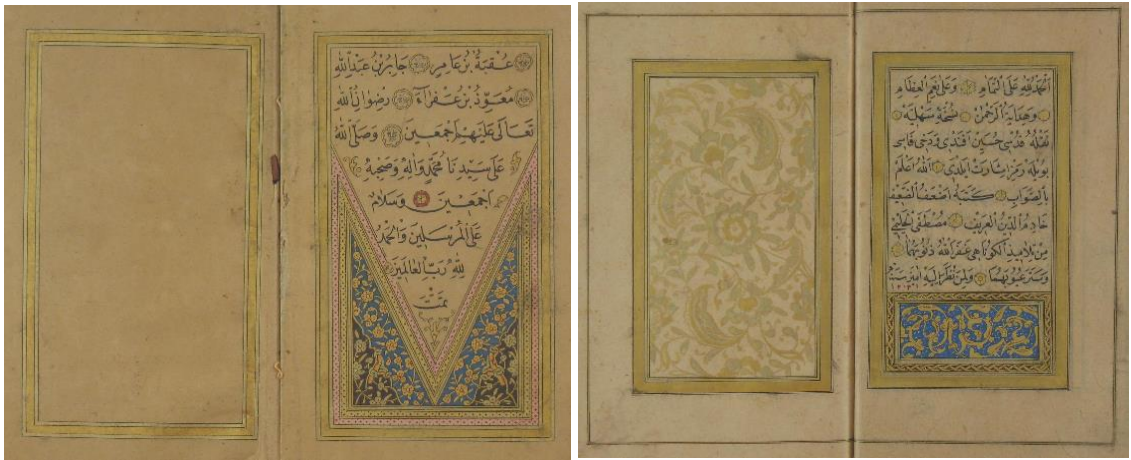 عُقْبَةُ بْنُ عَامِرٍ جَابِرُ بْنُ عَبْدِ اللّٰهِ
مُعَوِّذُ بْنُ عَفْرَآءَ رِضْوَانُ اللّٰهِ
تَعَالٰى عَلَيْهِمْ اَجْمَعِينَ وَصَلَّى اللّٰهُ
عَلٰى سَيِّدِنَا مُحَمَّدٍ وَاٰلِهِ وَصَحْبِهِ
اَجْمَعِينَ وَسَلَامٌ
عَلَى الْمُرْسَلِينَ وَالْحَمْدُ
لِلّٰهِ رَبِّ الْعَالَمِينَ
تَمَّتْ
اَلْحَمْدُ لِلّٰهِ عَلَى التَّمَامِ وَعَلٰى نِعَمِ الْعِظَامِ
وَهِدَايَةُ الرَّحْمٰنِ نُسْخَةِ سَهْلِيَّه
حُسَيْنْ اَفَنْدِى
اَللّٰهُ اَعْلَمُ
بِالصَّوَابِ كَتَبَهُ اَضْعَفُ الضُّعَفَا
مُصْطَفَى
غَفَرَ اللّٰهُ ذُنُوبَهُمَا
وَسَتَرَ عُيُوبَهُمَا وَلِمَنْ نَظَرَ اِلَيْهِ اٰمِينَ